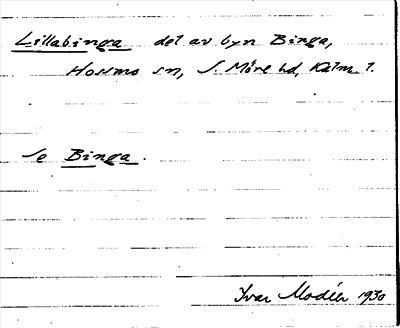 Lillabinga del av byn Binga,
Hossmo sn, S. Möre hd, Kalm. l.
Se Binga.
Ivar Modéer 1930